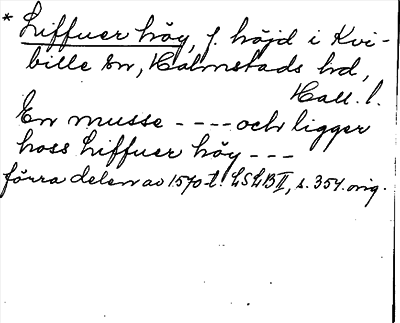 * Liffuer höy, f. höjd i Kvi-
bille sn, Halmstads hd,
Hall. l.
En musse - - - - och ligger
hoss Liffuer höy - - -
förra delen av 1570-t. LSLB II, s. 354. orig.